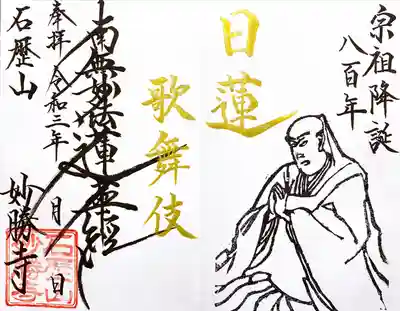 宗祖降誕
八百年
日蓮
歌舞伎
南無妙法蓮華経
奉拝 令和三年 月 日
石歴山
妙勝寺